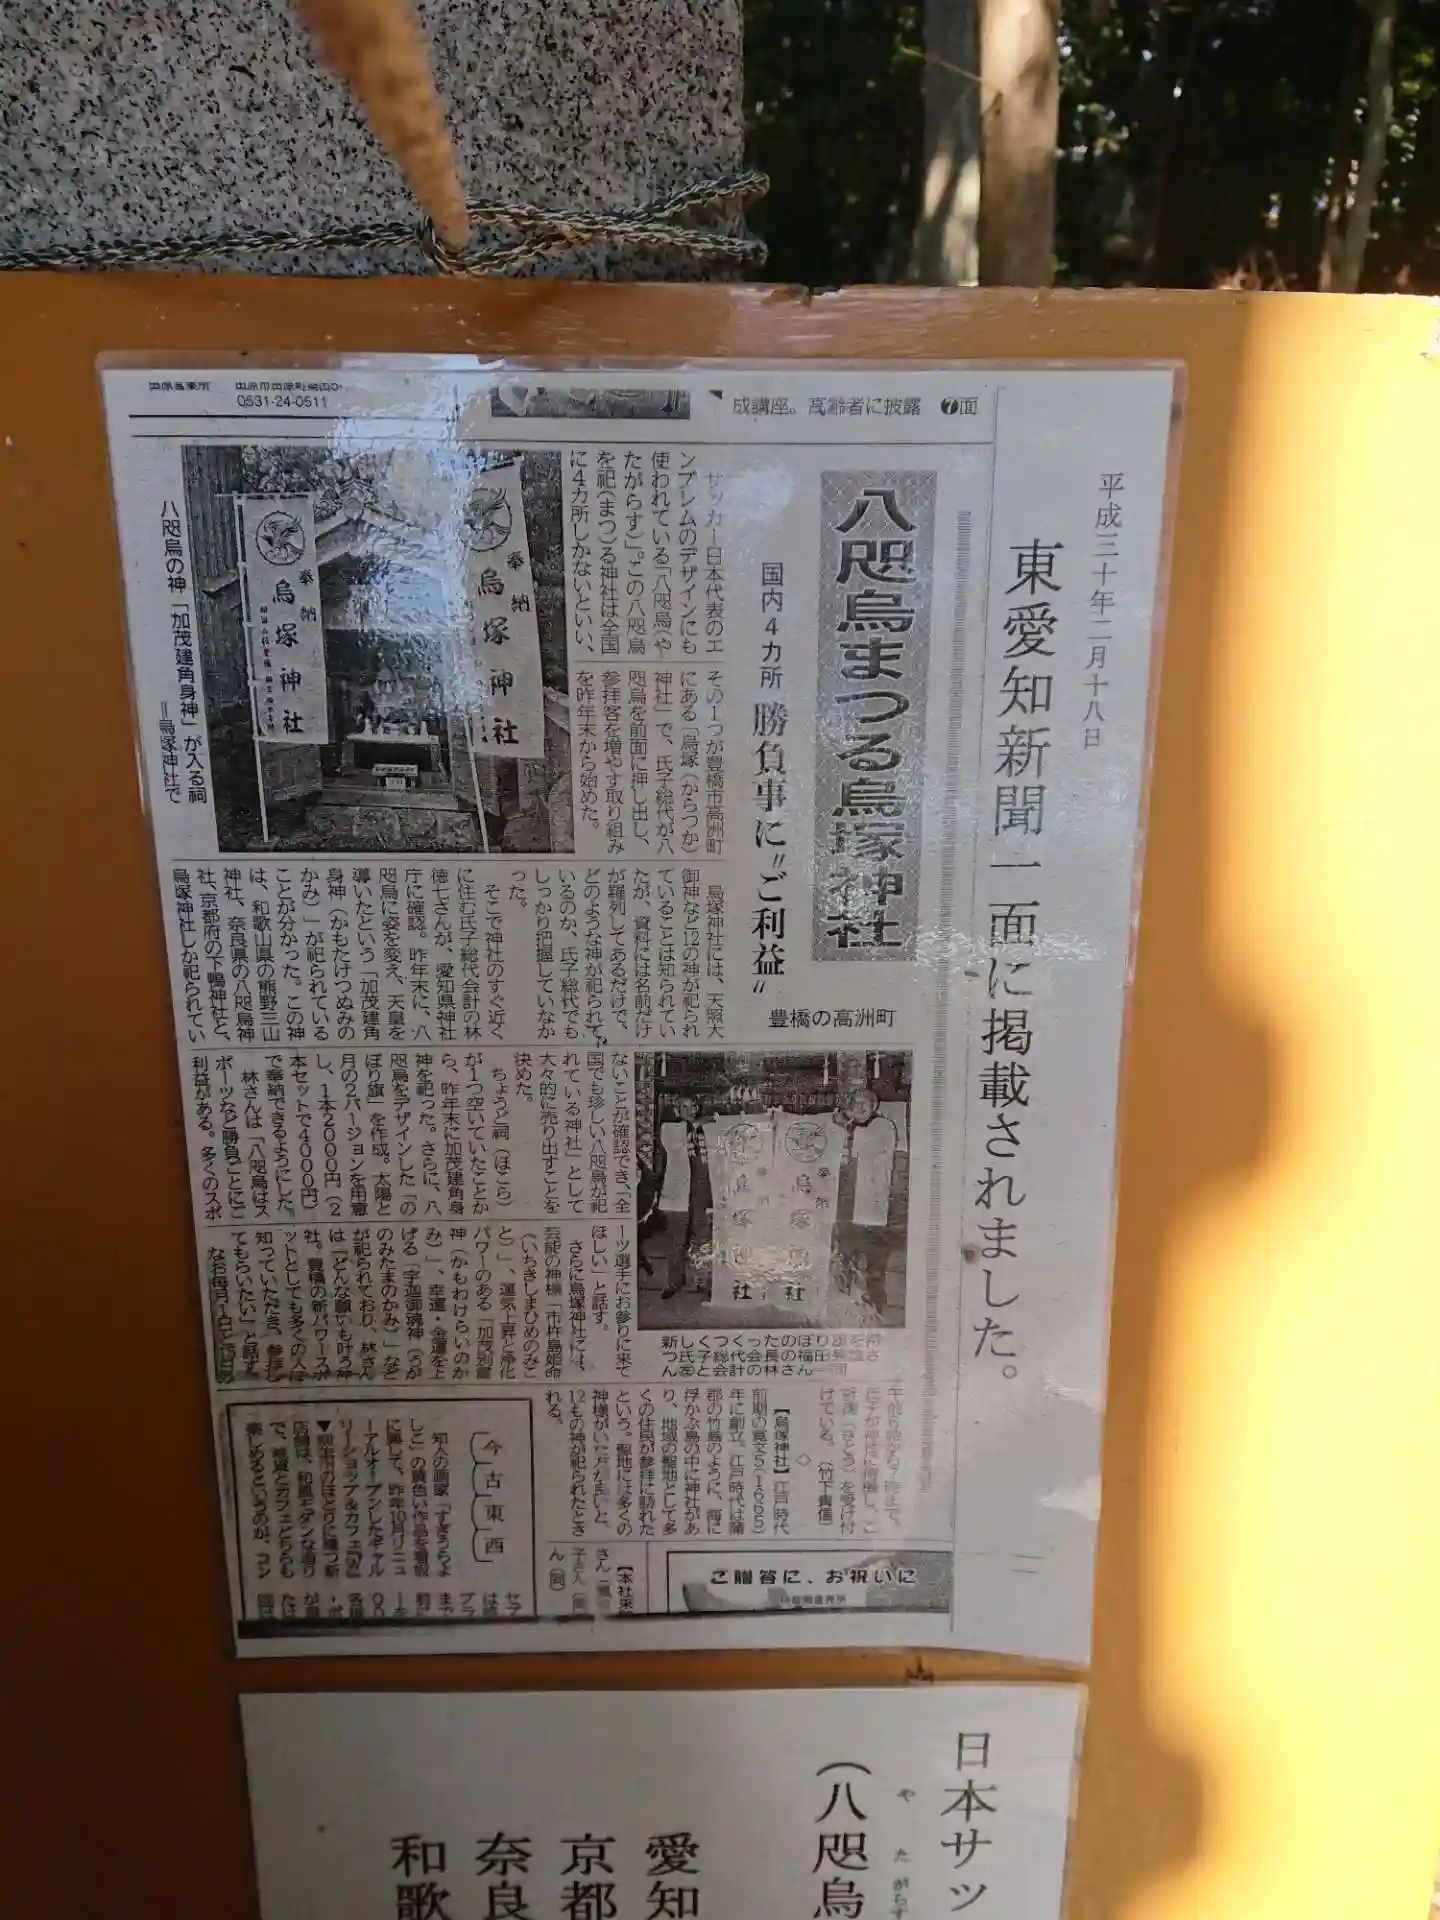 平成三十年二月十八日
東愛知新聞一面に掲載されました。
田原営業所
0531-24-0511
成講座。高齢者に披露 ❼面
八咫烏まつる烏塚神社
国内4カ所 勝負事に〝ご利益〟
豊橋の高洲町
サッカー日本代表のエ
ンブレムのデザインにも
使われている「八咫烏(や
たがらす)」。この八咫烏
を祀(まつ)る神社は全国
に4カ所しかないといい、
その1つが豊橋市高洲町
にある「烏塚(からつか)
神社」で、氏子総代が八
咫烏を前面に押し出し、
参拝客を増やす取り組み
を昨年末から始めた。
奉納
烏塚神社
奉納
烏塚神社
八咫烏の神「加茂建角身神」が入る祠
=烏塚神社で
烏塚神社には、天照大
御神など12の神が祀られ
ていることは知られてい
たが、資料には名前だけ
が羅列してあるだけで、
どのような神が祀られて
いるのか、氏子総代でも
しっかり把握していなか
った。
そこで神社のすぐ近く
に住む氏子総代会計の林
徳七さんが、愛知県神社
庁に確認。昨年末に、八
咫烏に姿を変え、天皇を
導いたという「加茂建角
身神(かもたけつぬみの
かみ)」が祀られている
ことが分かった。この神
は、和歌山県の熊野三山
神社、奈良県の八咫烏神
社、京都府の下鴨神社と、
烏塚神社しか祀られてい
ないことが確認でき、「全
国でも珍しい八咫烏が祀
れている神社」として
大々的に売り出すことを
決めた。
ちょうど祠(ほこら)
が1つ空いていたことか
ら、昨年末に加茂建角身
神を祀った。さらに、八
咫烏をデザインした「の
ぼり旗」を作成。太陽と
月の2バージョンを用意
し、1本2000円(2
本セットで4000円)
で奉納できるようにした。
林さんは「八咫烏はス
ポーツなど勝負ごとにご
利益がある。多くのスポ
ーツ選手にお参りに来て
ほしい」と話す。
さらに烏塚神社には、
芸能の神様「市杵島姫命
(いちきしまひめのみこ
と)」、運気上昇と浄化
パワーのある「加茂別雷
神(かもわけらいのか
み)」、幸運・金運を上
げる「宇迦御魂神(うか
のみたまのかみ)」など
が祀られており、林さん
は「どんな願いも叶う神
社。豊橋の新パワースポ
ットとしても多くの人に
知っていただき、参拝し
てもらいたい」と話す。
奉納
烏塚神社
奉納
烏塚神社
けている。(竹下貴信)
◇
【烏塚神社】江戸時代
前期の寛文5(1665)
年に創立。江戸時代は蒲
郡の竹島のように、海に
浮かぶ島の中に神社があ
り、地域の聖地として多
くの住民が参拝に訪れた
という。聖地には多くの
神様がいた方が良いと、
12もの神が祀られたとさ
れる。
今古東西
ご贈答に、お祝いに
日本サッ
やたがらす
(八咫烏
愛知
京都
奈良
和歌